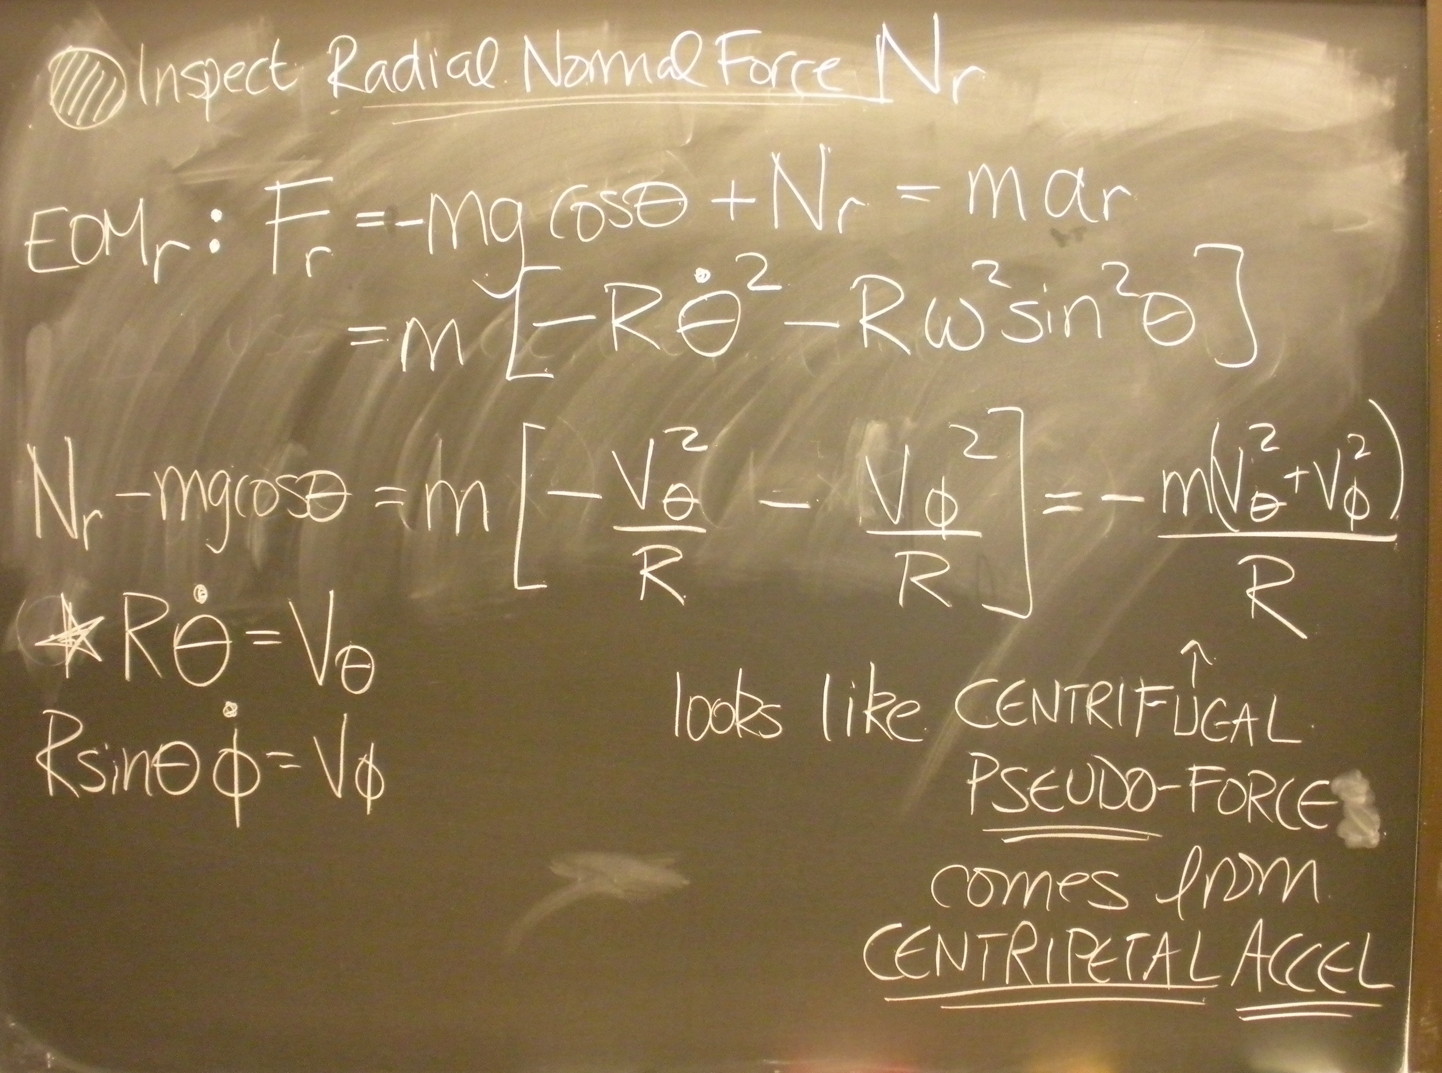 Inspect Radial Normal Force Nr
EOMr : Fr = -mg cosθ + Nr = mar
= m [ -Rθ̇² - Rω² sin²θ ]
Nr - mgcosθ = m [ - Vθ²/R - Vϕ²/R ] = - m(Vθ² + Vϕ²)/R
★ Rθ̇ = Vθ
Rsinθ ϕ̇ = Vϕ
↑
looks like CENTRIFUGAL
PSEUDO-FORCE
comes from
CENTRIPETAL ACCEL